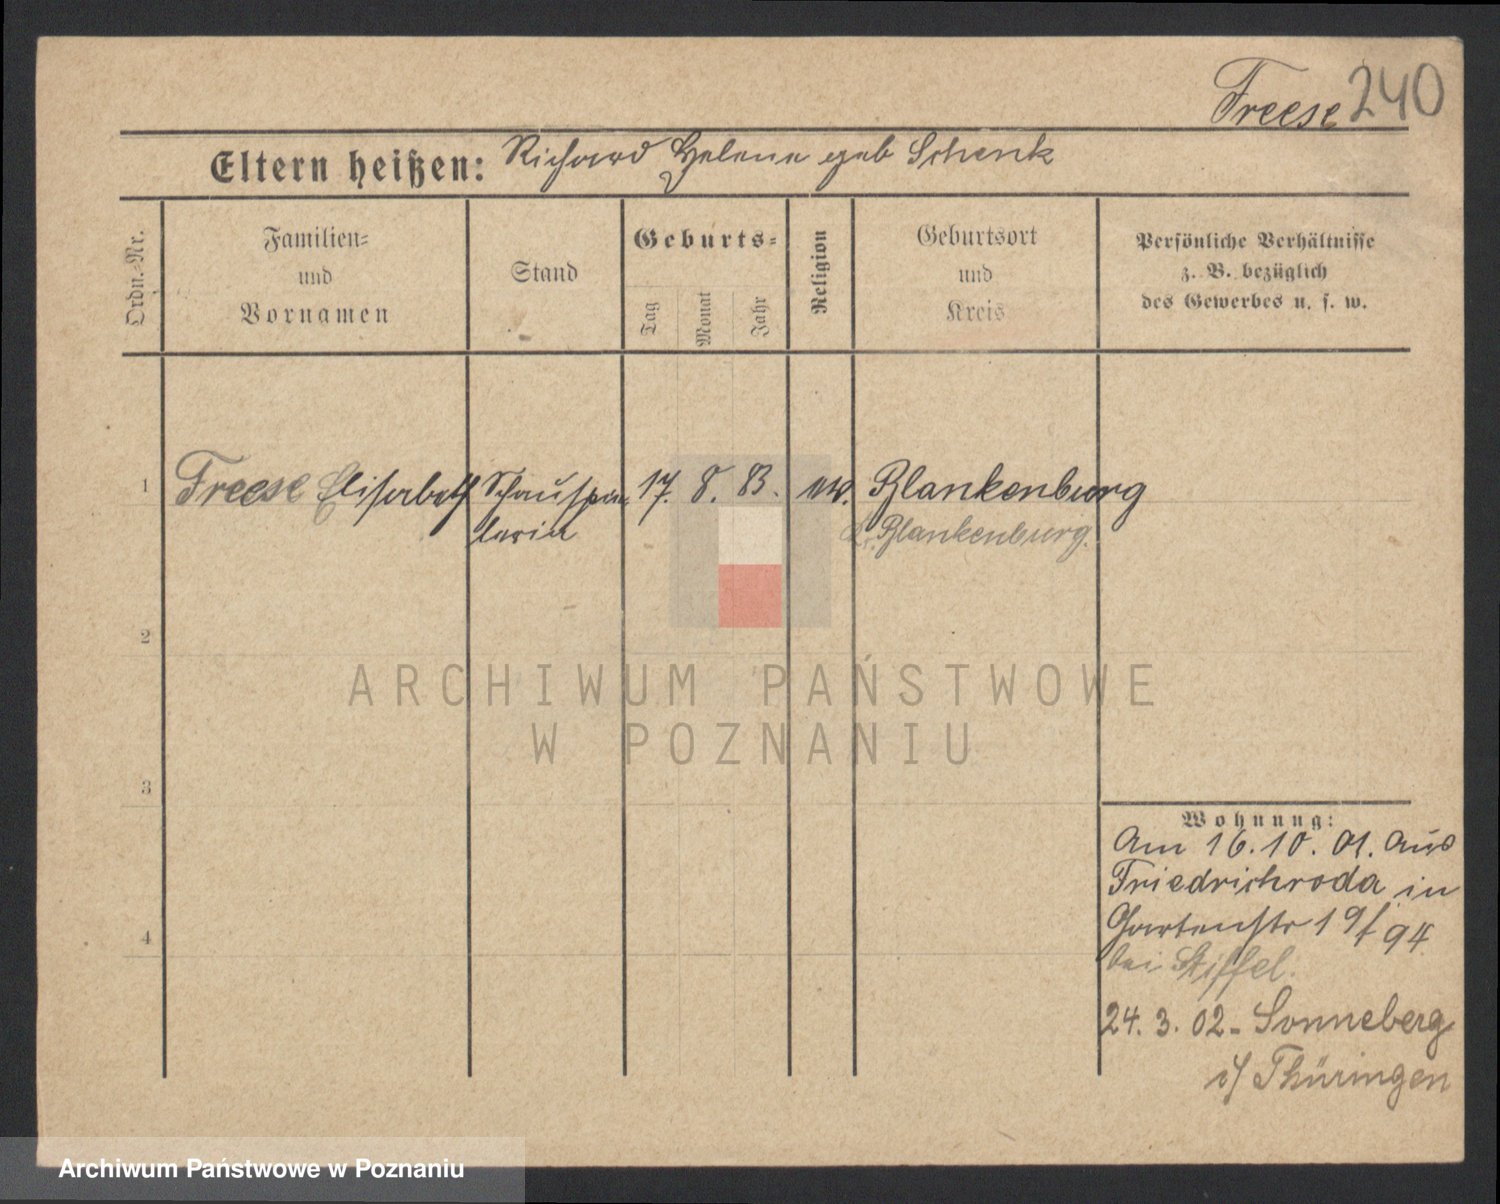 Freese 240
Eltern heißen: Richard Helene geb Schenk
Ordn.=Nr.
Familien=
und
Vornamen
Stand
Geburts=
Tag
Monat
Jahr
Religion
Geburtsort
und
Kreis
Persönliche Verhältnisse
z. B. bezüglich
des Gewerbes u. s. w.
1 Freese Elisabeth Schauspie 17. 8. 83. ev. Blankenburg
lerin Kr. Blankenburg.
2
ARCHIWUM PAŃSTWOWE
W POZNANIU
3
Wohnung:
Am 16.10.01. aus
Friedrichroda in
Gartenstr 19/94
4
bei Stiffel.
24. 3. 02- Sonneberg
i/ Thüringen
Archiwum Państwowe w Poznaniu